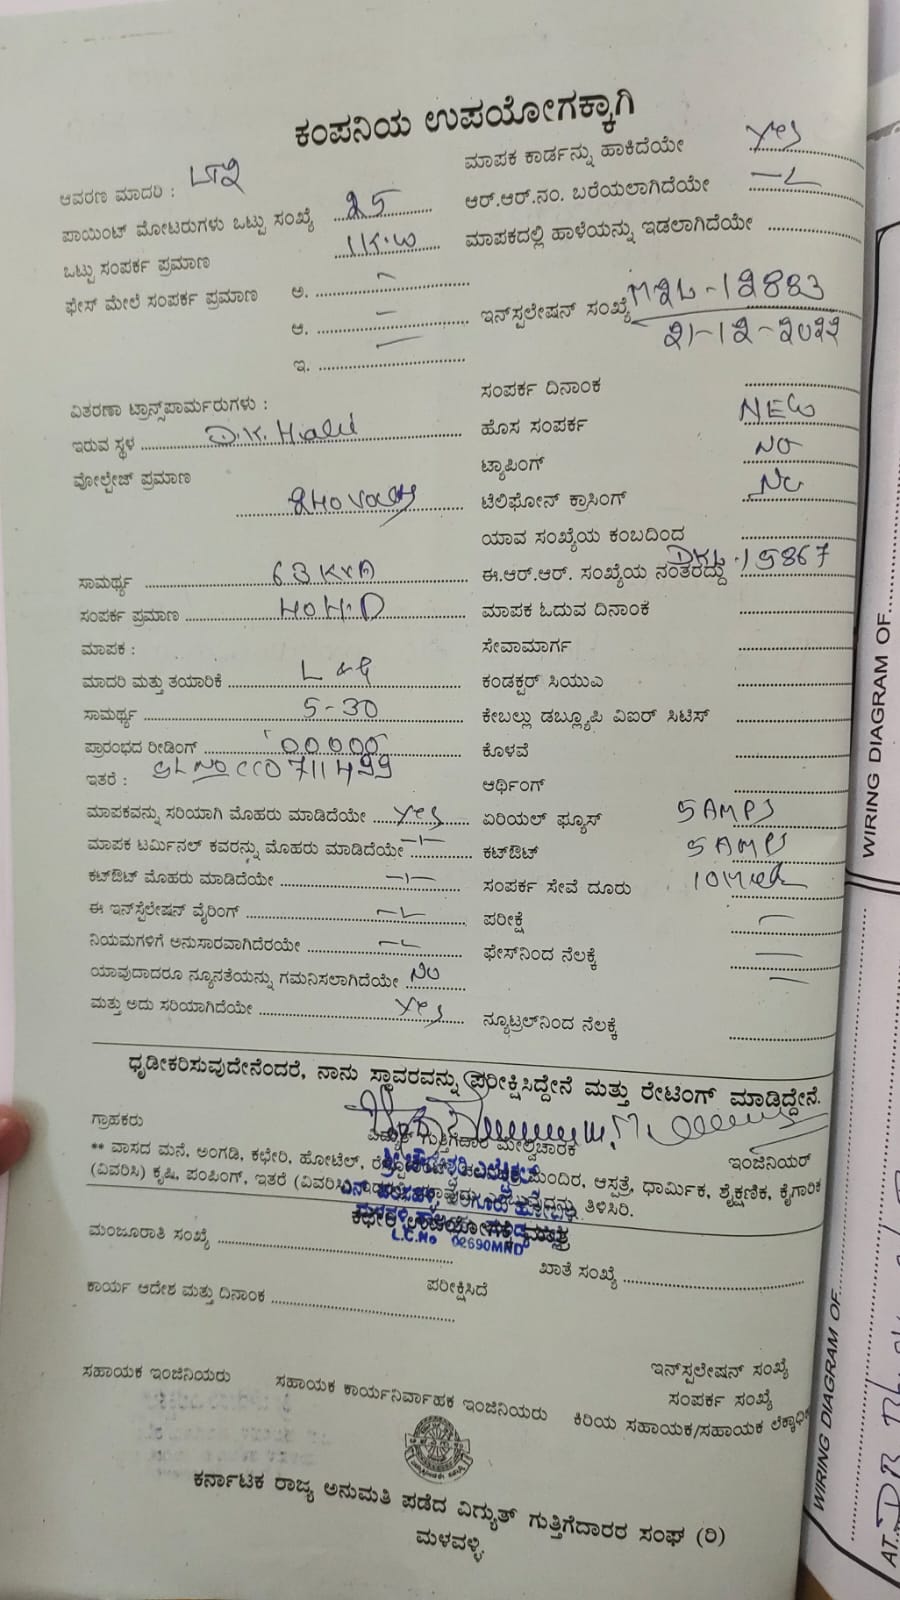 ಕಂಪನಿಯ ಉಪಯೋಗಕ್ಕಾಗಿ
ಆವರಣ ಮಾದರಿ :
ಮಾಪಕ ಕಾರ್ಡನ್ನು ಹಾಕಿದೆಯೇ Yes
ಪಾಯಿಂಟ್ ಮೋಟರುಗಳು ಒಟ್ಟು ಸಂಖ್ಯೆ 25
ಆರ್.ಆರ್.ನಂ. ಬರೆಯಲಾಗಿದೆಯೇ
ಒಟ್ಟು ಸಂಪರ್ಕ ಪ್ರಮಾಣ 1K.W
ಮಾಪಕದಲ್ಲಿ ಹಾಳೆಯನ್ನು ಇಡಲಾಗಿದೆಯೇ
ಫೇಸ್ ಮೇಲೆ ಸಂಪರ್ಕ ಪ್ರಮಾಣ ಅ.
ಆ.
ಇನ್‌ಸ್ಪಲೇಷನ್ ಸಂಖ್ಯೆ M2L-12883
21-12-2022
ಇ.
ಸಂಪರ್ಕ ದಿನಾಂಕ
ವಿತರಣಾ ಟ್ರಾನ್ಸ್‌ಪಾರ್ಮರುಗಳು :
ಇರುವ ಸ್ಥಳ D.K. Halli
ಹೊಸ ಸಂಪರ್ಕ NEW
ವೋಲ್ಟೇಜ್ ಪ್ರಮಾಣ
240 Volts
ಟ್ಯಾಪಿಂಗ್ NO
ಟೆಲಿಫೋನ್ ಕ್ರಾಸಿಂಗ್ No
ಯಾವ ಸಂಖ್ಯೆಯ ಕಂಬದಿಂದ
ಸಾಮರ್ಥ್ಯ 63 KVA
ಈ.ಆರ್.ಆರ್. ಸಂಖ್ಯೆಯ ನಂತರದ್ದು DKL.15867
ಸಂಪರ್ಕ ಪ್ರಮಾಣ
ಮಾಪಕ ಓದುವ ದಿನಾಂಕ
ಮಾಪಕ :
ಸೇವಾಮಾರ್ಗ
ಮಾದರಿ ಮತ್ತು ತಯಾರಿಕೆ L & G
ಕಂಡಕ್ಟರ್ ಸಿಯುಎ
ಸಾಮರ್ಥ್ಯ 5-30
ಕೇಬಲ್ಲು ಡಬ್ಲ್ಯೂಪಿ ವಿಐರ್ ಸಿಟಿಸ್
ಪ್ರಾರಂಭದ ರೀಡಿಂಗ್ 00000
ಕೊಳವೆ
ಇತರೆ : SL NO CCO 711499
ಆರ್ಥಿಂಗ್
ಮಾಪಕವನ್ನು ಸರಿಯಾಗಿ ಮೊಹರು ಮಾಡಿದೆಯೇ Yes
ಏರಿಯಲ್ ಫ್ಯೂಸ್ 5 AMPS
ಮಾಪಕ ಟರ್ಮಿನಲ್ ಕವರನ್ನು ಮೊಹರು ಮಾಡಿದೆಯೇ
ಕಟ್‌ಔಟ್ 5 AMPS
ಕಟ್‌ಔಟ್ ಮೊಹರು ಮಾಡಿದೆಯೇ
ಸಂಪರ್ಕ ಸೇವೆ ದೂರು
ಈ ಇನ್‌ಸ್ಟೆಲೇಷನ್ ವೈರಿಂಗ್
ಪರೀಕ್ಷೆ
ನಿಯಮಗಳಿಗೆ ಅನುಸಾರವಾಗಿದೆರಯೇ
ಫೇಸ್‌ನಿಂದ ನೆಲಕ್ಕೆ
ಯಾವುದಾದರೂ ನ್ಯೂನತೆಯನ್ನು ಗಮನಿಸಲಾಗಿದೆಯೇ No
ಮತ್ತು ಅದು ಸರಿಯಾಗಿದೆಯೇ Yes
ನ್ಯೂಟ್ರಲ್‌ನಿಂದ ನೆಲಕ್ಕೆ
ಧೃಡೀಕರಿಸುವುದೇನೆಂದರೆ, ನಾನು ಸ್ಥಾವರವನ್ನು ಪರೀಕ್ಷಿಸಿದ್ದೇನೆ ಮತ್ತು ರೇಟಿಂಗ್ ಮಾಡಿದ್ದೇನೆ.
ಗ್ರಾಹಕರು ವಿದ್ಯುತ್ ಗುತ್ತಿಗೆದಾರ ಮೇಲ್ವಿಚಾರಕ ಇಂಜಿನಿಯರ್
** ವಾಸದ ಮನೆ, ಅಂಗಡಿ, ಕಛೇರಿ, ಹೋಟೆಲ್, ಮಂದಿರ, ಆಸ್ಪತ್ರೆ, ಧಾರ್ಮಿಕ, ಶೈಕ್ಷಣಿಕ, ಕೈಗಾರಿಕ
(ವಿವರಿಸಿ) ಕೃಷಿ, ಪಂಪಿಂಗ್, ಇತರೆ (ವಿವರಿಸಿ) ತಿಳಿಸಿರಿ.
ಕಛೇರಿ ಉಪಯೋಗಕ್ಕೆ ಮಾತ್ರ
L.C.No 02690MND
ಮಂಜೂರಾತಿ ಸಂಖ್ಯೆ
ಖಾತೆ ಸಂಖ್ಯೆ
ಕಾರ್ಯ ಆದೇಶ ಮತ್ತು ದಿನಾಂಕ
ಪರೀಕ್ಷಿಸಿದೆ
ಇನ್‌ಸ್ಪಲೇಷನ್ ಸಂಖ್ಯೆ
ಸಂಪರ್ಕ ಸಂಖ್ಯೆ
ಸಹಾಯಕ ಇಂಜಿನಿಯರು ಸಹಾಯಕ ಕಾರ್ಯನಿರ್ವಾಹಕ ಇಂಜಿನಿಯರು ಕಿರಿಯ ಸಹಾಯಕ/ಸಹಾಯಕ
ಕರ್ನಾಟಕ ರಾಜ್ಯ ಅನುಮತಿ ಪಡೆದ ವಿಗ್ಯುತ್ ಗುತ್ತಿಗೆದಾರರ ಸಂಘ (ರಿ)
ಮಳವಳ್ಳಿ.
WIRING DIAGRAM OF
WIRING DIAGRAM OF
AT.